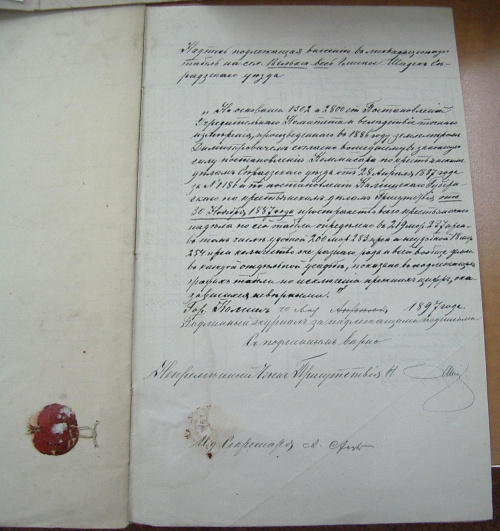 Надпись подлежащая внесению въ ликвидационную
табель на сел. Велька весь гмины Шадекъ Се-
радзскаго уезда
„На основании 1302 и 2800 ст. Постановлений
Учредительнаго Комитета и вследствие
измерения, произведеннаго въ 1886 году землемеромъ
согласно вошедшему въ законную
силу постановлению Коммисара по крестьянскимъ
деламъ Серадзскаго уезда отъ 28 Апреля 1887 года
за № 1186 и по постановлению Калишскаго Губерн-
скаго по крестьянскимъ деламъ Присутствия отъ
30 Ноября 1887 года пространство крестьянскаго
надела по сей табели определено въ 219 мор. 237 прен.
въ томъ числе удобной 200 мор. 283 прен. и неудобной 18 мор.
254 прен. количество же разнаго рода земли вообще
въ каждой отдельной усадьбе, показано въ надлежащихъ
графахъ табели по исключении прежнихъ цифръ, ока-
завшихся неверными."
Гор. Калишъ 10 Мая 1897 года.
Подлинный журналъ за надлежащимъ подписомъ
Съ подлиннымъ верно
Непременный Членъ Присутствия Н.
И. д. Секретаря А.